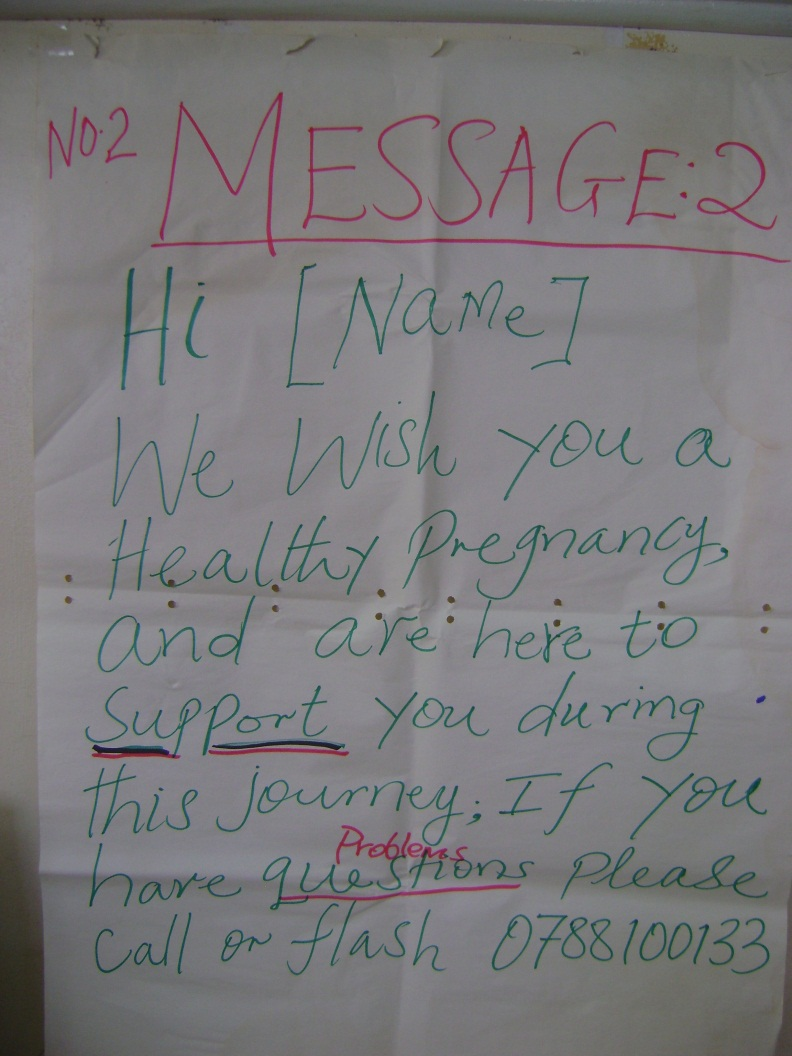 NO.2 MESSAGE:2
Hi [Name]
We Wish you a
Healthy Pregnancy,
and are here to
Support you during
this journey; If you
Problems
have questions Please
Call or flash 0788100133